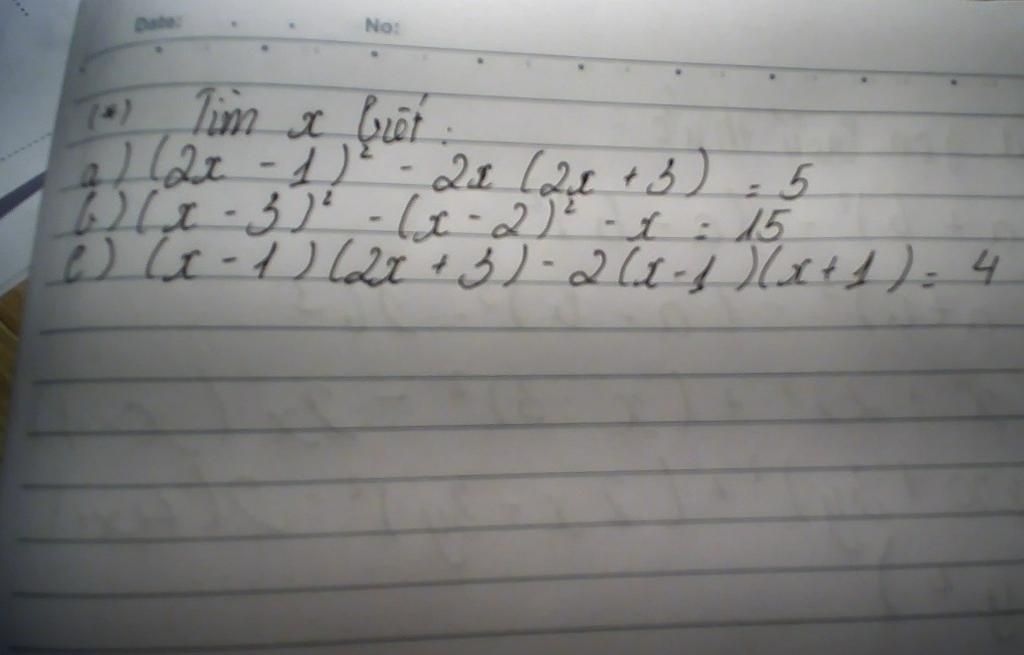 Date: No:
(*) Tìm x biết:
a) (2x - 1)² - 2x (2x + 3) = 5
b) (x - 3)² - (x - 2)² - x = 15
c) (x - 1)(2x + 3) - 2(x - 1)(x + 1) = 4